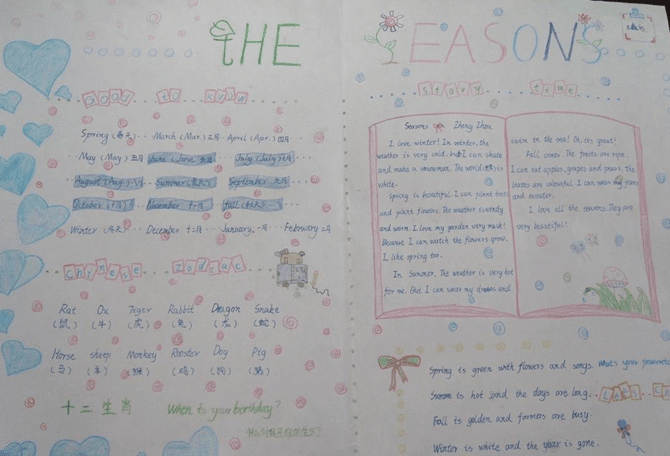 THE SEASONS
good to know
story time
Spring (春天) March (Mar.) 三月 April (Apr.) 四月
May (May) 五月 June (June 六月 July (July) 七月
August (Aug) 八月 Summer (夏天) September 九月
October 十月 November 十一月 fall (秋天)
Winter (冬天) December 十二月 January 一月 February 二月
Chinese zodiac
Rat Ox Tiger Rabbit Dragon Snake
(鼠) (牛) (虎) (兔) (龙) (蛇)
Horse sheep Monkey Rooster Dog Pig
(马) (羊) (猴) (鸡) (狗) (猪)
十二生肖 When is your birthday?
Seasons Zhang Zhen
I love winter! In winter, the
weather is very cold. but I can skate
and make a snowman. The world is in
white.
Spring is beautiful. I can plant trees
and plant flowers. The weather is windy
and warm. I love my garden very much!
Because I can watch the flowers grow.
I like spring too.
In Summer. The weather is very hot
for me. But I can wear my dresses and
swim in the sea! Oh, its great!
Fall comes. The fruits are ripe.
I can eat apples, grapes and pears. The
leaves are colourful. I can wear my jeans
and sweater.
I love all the seasons. They are
very beautiful!
Spring is green with flowers and songs. What's your favourite
Summer is hot and the days are long.
Fall is golden and farmers are busy.
Winter is white and the year is gone.